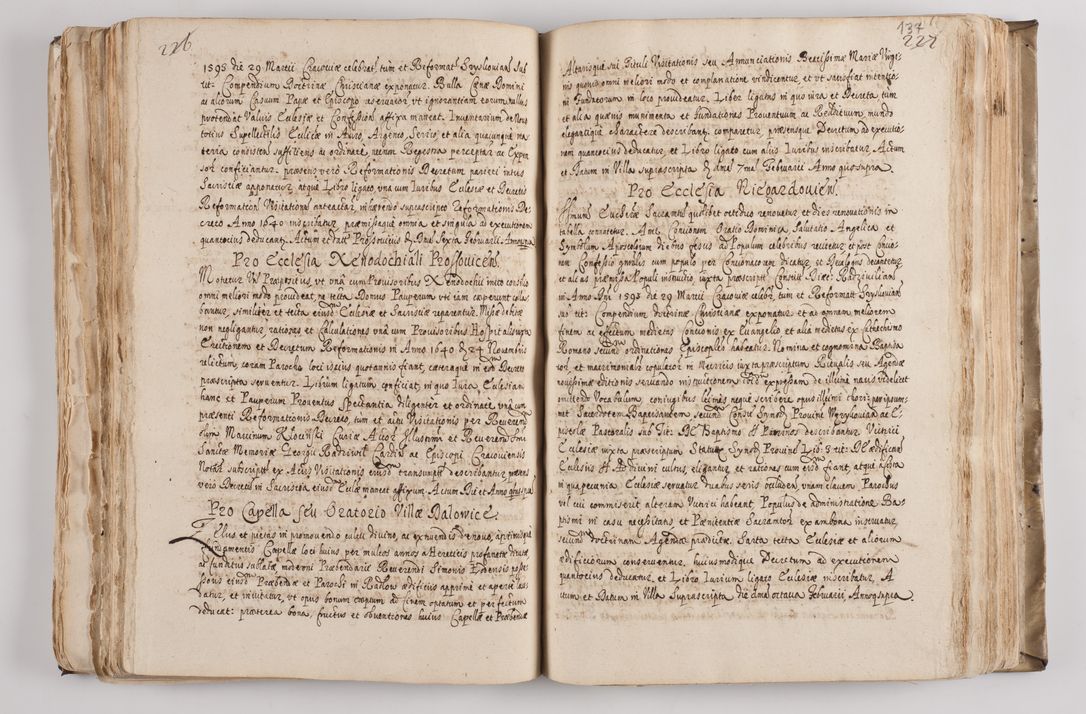 226
1593 die 29 Martii Cracoviæ celebrat, tum et Reformat Gzyslouian Sub
tit: Compendium Doctrinæ Christianæ exponatur. Bulla Cænæ Domini
ac aliorum Casuum Papæ et Episcopo reservator ut ignorantiam eorum nullus
protendat Valvis Ecclesiæ et Confessional affixa maneat. Inventarium de Novo
totius Supellectilis Ecclicæ in Auro, Argento, Serico et alia quacunque ma
teria consistens sufficiens ac ordinate, necnon Regestra perceptar et Expen
sor conficiantur. præsens vero Reformationis Decretum parieti intus
Sacristiæ apponatur, atque Libro ligato, una cum Iuribus Ecclesiæ et Decretis
Reformation Visitationū anteactar, inhærendo suprascripto Reformationis De
creto Anno 1640 inscribatur, præmissaque omnia et singula ad executionem
quantocius deducant. Actum et Datt Prossoviciis Die Sexta Februarii Anno
Pro Ecclesia Xenodochiali Prossovicen.
Moneatur Vn Præpositus, ut una cum Provisoribus Xenodochii inito consilio
omni meliori modo provideat, ne tecta Domus Pauperum uti iam cæperunt colla
bantur, similiter et tecta eiusd Ecclesiæ et Sacristiæ reparentur. Missæ debitæ
non negligantur rationes et Calculationes una cum Provisoribus Hospitalis iuxta
Erectionem et Decretum Reformationis in Anno 1640 24 Novembris
relictum, coram Parocho loci ipsius quotannis fiant, cæteraque in eod Decreto
præscripta serventur. Librum ligatum conficiat, in quo Iura Ecclesiam
hanc et Pauperum Proventus Spectantia diligenter et ordinate, una cum
præsenti Reformationis Decreto, tum et actu Visitationis per Reverend
olim Marcinum Kłociński Curiæ Illustrmi et Reverendsmi
Sanctæ Memoriæ Georgii Radziwił Cardis ac Episcopi Cracoviensis
Notar subscript ex Actis Visitationis eiusd transumpt describantur, præsens
vero Decretū in Sacristia eiusd Ecclæ maneat affixum. Actum Die et Anno quo supra
Pro Capella seu Oratorio Villæ Dalowice.
Zelus et pietas in promovendo cultu divino, ac extruendo de novo, aptrimisque
fulciendis Capellæ loci huius per multos annos a Hæreticis profanatæ dirutæ
ac funditus sublatæ, moderni Præbendarii Reverendi Simonis
soris eiusd Præbendæ et Parochi in Radłow ædificiis apprime et aperte lau
datur, et invitatur, ut opus bonum cæptum ad finem optatum et perfectum
deducat: præterea bona, fructus et obventiones huius Capellæ et Præbendæ
137
227
Altarisque sui Tituli Visitationis seu Annunciationis Beatissimæ Mariæ Virgi
nis quovis omni meliori modo et complanatione vindicentur, et ut satisfiat intentio
ni Fundatorum in loco provideatur. Liber ligatus in quo iura et Decreta, tum
et alia quævis munimenta et fundationes Proventuum ac Reddituum, mundo
elegantique Charactere describant, comparetur, præsensque Decretum ad executio
nem quantocius deducatur, et Libro ligato cum aliis Iuribus inscribatur. Actum
et Datum in Villa suprascripta die 7ma Februarii Anno quo supra.
Pro Ecclesia Niegardovien.
Ssmum Euchariæ Sacramtū quolibet octiduo renovetur et dies renovationis in
tabella connotetur. Ante Concionem Oratio Dominica, Salutatio Angelica, et
Symbolum Apostolorum Diebus festis ad Populum celebribus recitetur, et post Concio
nem Confessio gnralis cum populo per Concionatorem dicatur, et Decalogus decantetur
et alias præmissa Populi instructio, iuxta præscript Constit Diæc: Radziviliana
in Anno Dni 1593 die 29 Martii Cracoviæ celebr, tum et Reformatt Gzyslouian
sub tit: Compendium doctrinæ Christianæ exponatur, et ad omnem meliorem
finem ac effectum medietas Concionis ex Evangelio et alia medietas ex Cathechismo
Romano secund ordinationes Episcoples habeatur. Nomina et cognomina Baptiza
tor, et matrimonialr copulator in Metricis iuxta præscriptum Ritualis seu Agendæ
novissimæ editionis servando in scribitionem ibid expressam de illimæ natis videlicet
omittendo Vocabulum, coniugibus legimis neque scribere opus illimi thori: per ipsum:
met Sacerdotem Baptisantem secund Consti Synod Provinl Wezykouian ac E:
pistolæ Pastoralis sub Tit: De Baptismo et Patrinos describantur. Vitrici
Ecclesiæ iuxta præscriptum Statut Synod Provinl Lib: 3. tit: De Ædificandis
Ecclesiis et Ad Divini cultus, eligantur, et rationes cum eisd fiant, atque Cista
in qua pecunia Ecclesiæ servatur duabus seris occludatur, unam clavem Parochus
vel cui commiserit alteram Vitrici habeant. Populus de administratione Ba
ptismi in casu necessitatis et Pænitentiæ Sacramtor ex ambona instruatur,
secund doctrinam Agendæ prædictæ. Sarta tecta Ecclesiæ et aliorum
ædificiorum conserventur, huiusmodique Decretum ad executionem
quantocius deducatur, et Libro Iurium ligato Ecclesiæ inscribatur, A
ctum et Datum in Villa Suprascripta die dma octava Februarii, Anno q supra.